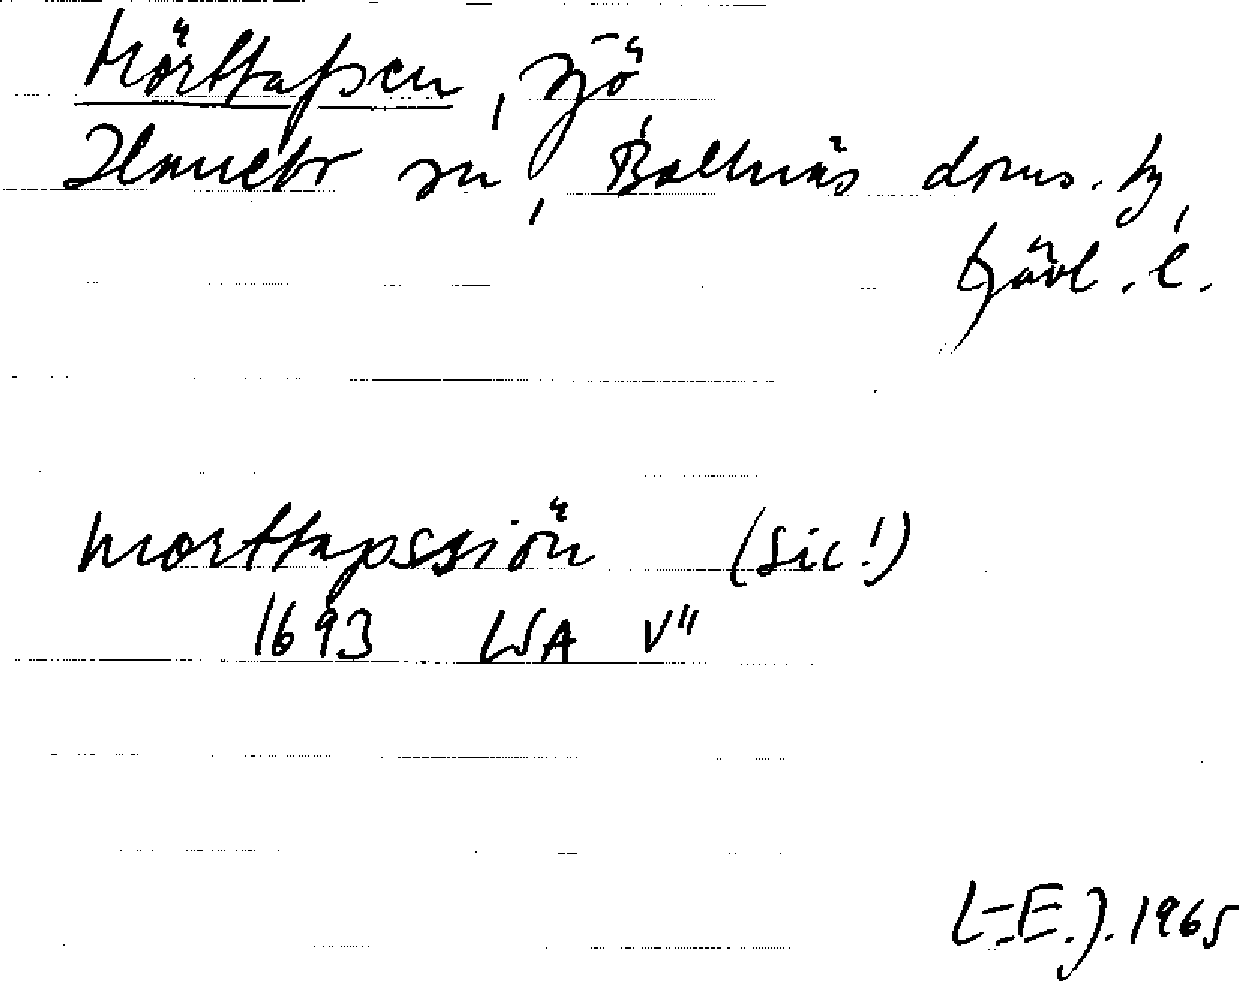 Mörttapsen, sjö
Hamebr sn, Bollnäs doms. hg,
Gävl. l.
Morttapssiön (sic!)
1693 LSA V"
L-E.J. 1965